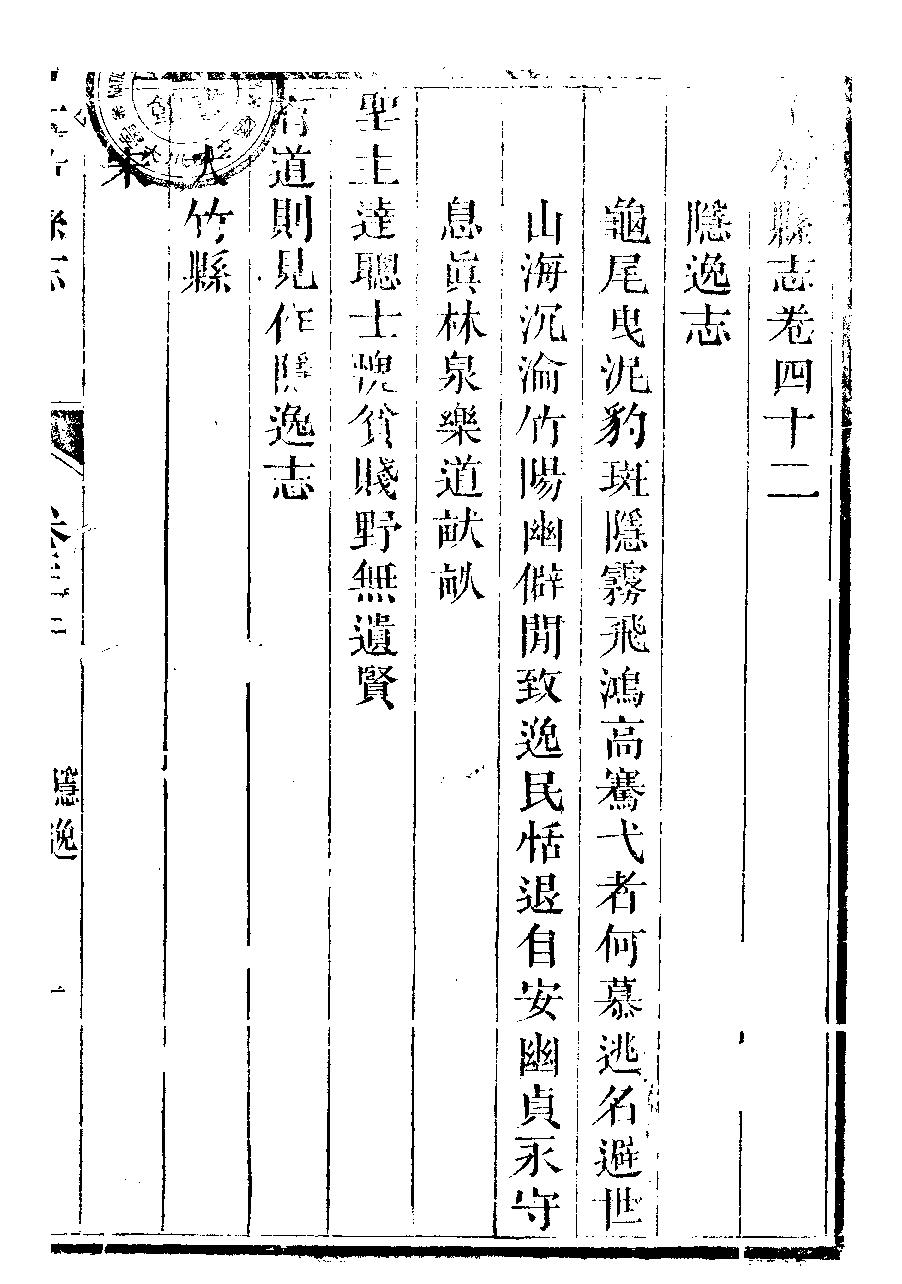 大竹縣志卷四十二
隱逸志
龜尾曳泥豹斑隱霧飛鴻高騫弋者何慕逃名避世
山海沉淪竹陽幽僻閒致逸民恬退自安幽貞永守
息眞林泉樂道畎畝
聖主達聰士愧貧賤野無遺賢
有道則見作隱逸志
大竹縣
宋
大竹縣志
卷四十二
隱逸
一